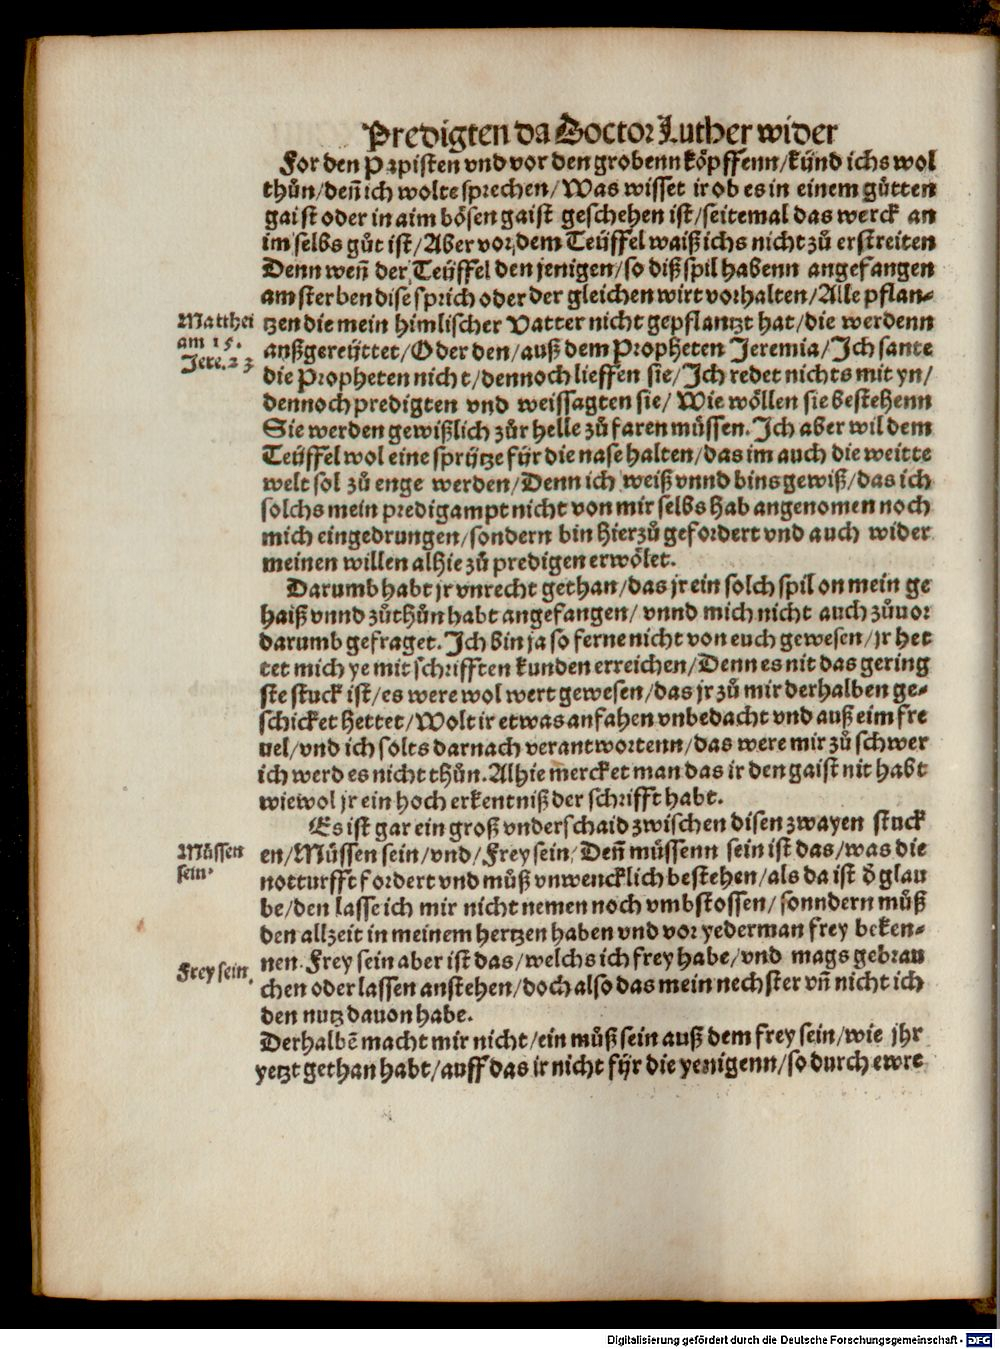 Predigten da Doctor Luther wider
For den Papisten vnd vor den grobenn köpffenn/künd ichs wol
thůn/deñ ich wolte sprechen/Was wisset ir ob es in einem gůtten
gaist oder in aim bösen gaist geschehen ist/seitemal das werck an
im selbs gůt ist/Aber vor dem Teüffel waiß ichs nicht zů erstreiten
Denn weñ der Teüffel den jenigen/so diß spil habenn angefangen
am sterben dise sprich oder der gleichen wirt vorhalten/Alle pflan-
Matthei
am 15.
Jere.23
tzen die mein himlischer Vatter nicht gepflantzt hat/die werdenn
außgereüttet/Oder den/auß dem Propheten Jeremia/Ich sante
die Propheten nicht/dennoch lieffen sie/Ich redet nichts mit yn/
dennoch predigten vnd weissagten sie/ Wie wöllen sie bestehenn
Sie werden gewißlich zůr helle zů faren müssen. Ich aber wil dem
Teüffel wol eine sprytze für die nase halten/das im auch die weitte
welt sol zů enge werden/Denn ich weiß vnnd bins gewiß/das ich
solchs mein predigampt nicht von mir selbs hab angenomen noch
mich eingedrungen/sondern bin hierzů gefordert vnd auch wider
meinen willen alhie zů predigen erwölet.
Darumb habt jr vnrecht gethan/das jr ein solch spil on mein ge
haiß vnnd zůthůn habt angefangen/ vnnd mich nicht auch zůuor
darumb gefraget. Ich bin ja so ferne nicht von euch gewesen/jr het
tet mich ye mit schrifften kunden erreichen/Denn es nit das gering
ste stuck ist/es were wol wert gewesen/das jr zů mir derhalben ge-
schicket hettet/Wolt ir etwas anfahen vnbedacht vnd auß eim fre
uel/vnd ich solts darnach verantwortenn/das were mir zů schwer
ich werd es nicht thůn. Alhie mercket man das ir den gaist nit habt
wiewol jr ein hoch erkentniß der schrifft habt.
Es ist gar ein groß vnderschaid zwischen disen zwayen stuck
Müssen
sein.
en/Müssen sein/vnd/Frey sein/Deñ müssenn sein ist das/was die
notturfft fordert vnd můß vnwencklich bestehen/als da ist ð glau
be/den lasse ich mir nicht nemen noch vmbstossen/ sonndern můß
den allzeit in meinem hertzen haben vnd vor yederman frey beken-
Frey sein.
nen. Frey sein aber ist das/welchs ich frey habe/vnd mags gebrau
chen oder lassen anstehen/doch also das mein nechster vñ nicht ich
den nutz dauon habe.
Derhalbẽ macht mir nicht/ein můß sein auß dem frey sein/wie jhr
yetzt gethan habt/auff das ir nicht für die yenigenn/so durch ewre
Digitalisierung gefördert durch die Deutsche Forschungsgemeinschaft - DFG